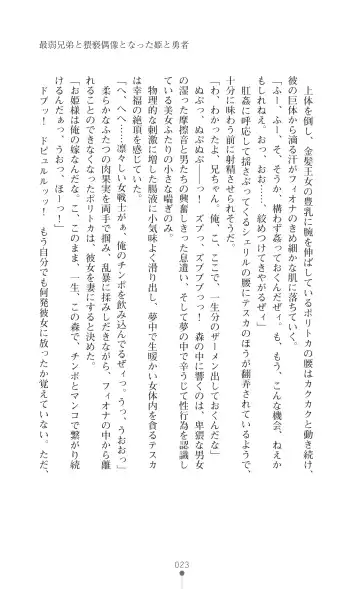 最弱兄弟と猥褻偶像となった姫と勇者
上体を倒し、金髪王女の豊乳に腕を伸ばしているポリトカの腰はカクカクと動き続け、
彼の巨体から滴る汗がフィオナのきめ細かな肌に落ちていく。
「ふー、ふー、そ、そうか、構わず姦っておくんだぜィ。も、もう、こんな機会、ねえか
もしれねえ。おっ、おお……、絞めつけてきやがるぜィ」
肛姦に呼応して揺さぶってくるシェリルの腰にテスカのほうが翻弄されているようで、
十分に味わう前に射精させられそうだ。
「わ、わかったよ、兄ちゃん。俺、こ、ここで、一生分のザーメン出しておくんだな」
ぬぷっ、ぬぷぬぷ――っ！ ズプっ、ズブブブっっ！ 森の中に響くのは、卑猥な男女
の湿った摩擦音と男たちの興奮しきった息遣い、そして夢の中で辛うじて性行為を認識し
ている美女ふたりの小さな喘ぎのみ。
物理的な刺激に増した腸液に小気味よく滑り出し、夢中で生暖かい女体内を貪るテスカ
は幸福の絶頂を感じていた。
「へ、へへ……、凛々しい女戦士がぁ、俺のチンポを飲み込んでるぜィっ、うっ、うおおっ」
柔らかなふたつの肉果実を両手で掴み、乱暴に揉みしだきながら、フィオナの中から離
れることのできなくなったポリトカは、彼女を妻にすると決めた。
「お姫様は、俺の嫁なんだな。こ、このまま、一生、この森で、チンポとマンコで繋がり続
けるんだぁっ、うおっ、ほーっ！」
ドブッ！ ドビュルルッッ！ もう自分でも何発彼女に放ったか覚えていない。ただ、
023